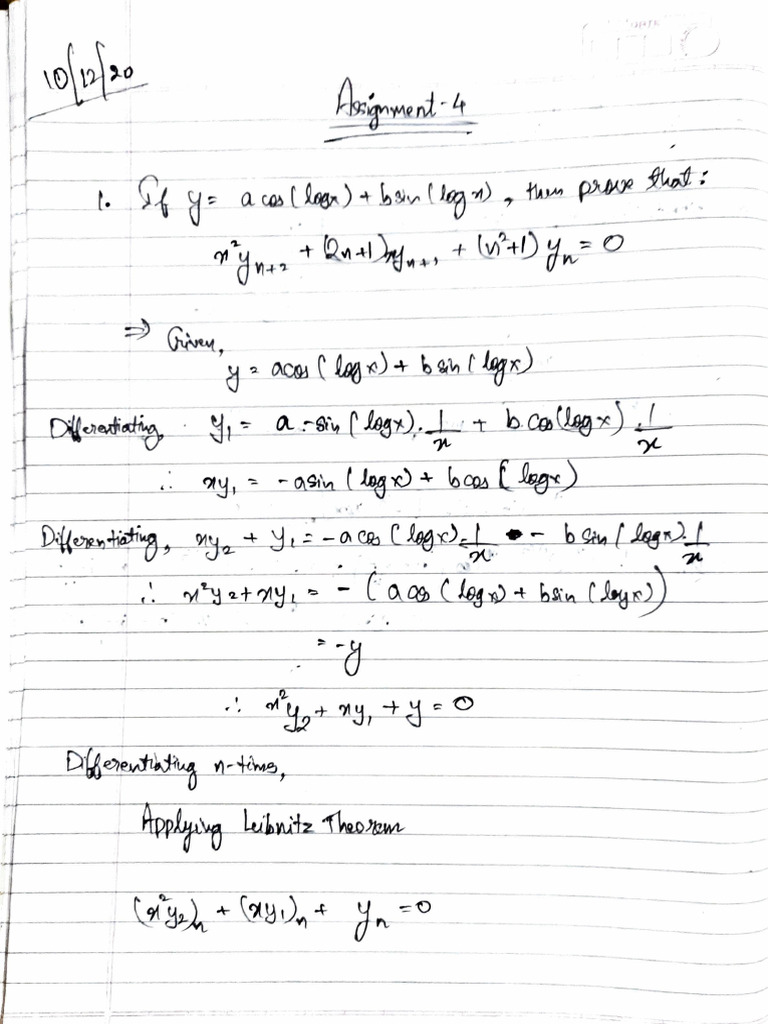 10/12/20
Assignment-4
1. If y = a cos(logx) + b sin(logx), then prove that:
x²yₙ₊₂ + (2n+1)xyₙ₊₁ + (n²+1) yₙ = 0
⇒ Given,
y = acos(logx) + b sin(logx)
Differentiating, y₁ = a.-sin(logx).1/x + b.cos(logx).1/x
∴ xy₁ = -asin(logx) + bcos(logx)
Differentiating, xy₂ + y₁ = -acos(logx).1/x - b sin(logx).1/x
∴ x²y₂ + xy₁ = - (acos(logx) + bsin(logx))
= -y
∴ x²y₂ + xy₁ + y = 0
Differentiating n-times,
Applying Leibnitz Theorem
(x²y₂)ₙ + (xy₁)ₙ + yₙ = 0